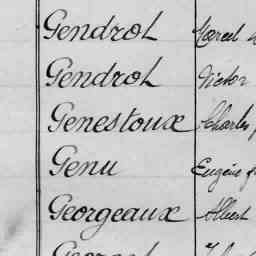 Gendrot Marcel
Gendrot Victor
Genestoux Charles
Genu Eugène
Georgeaux Albert